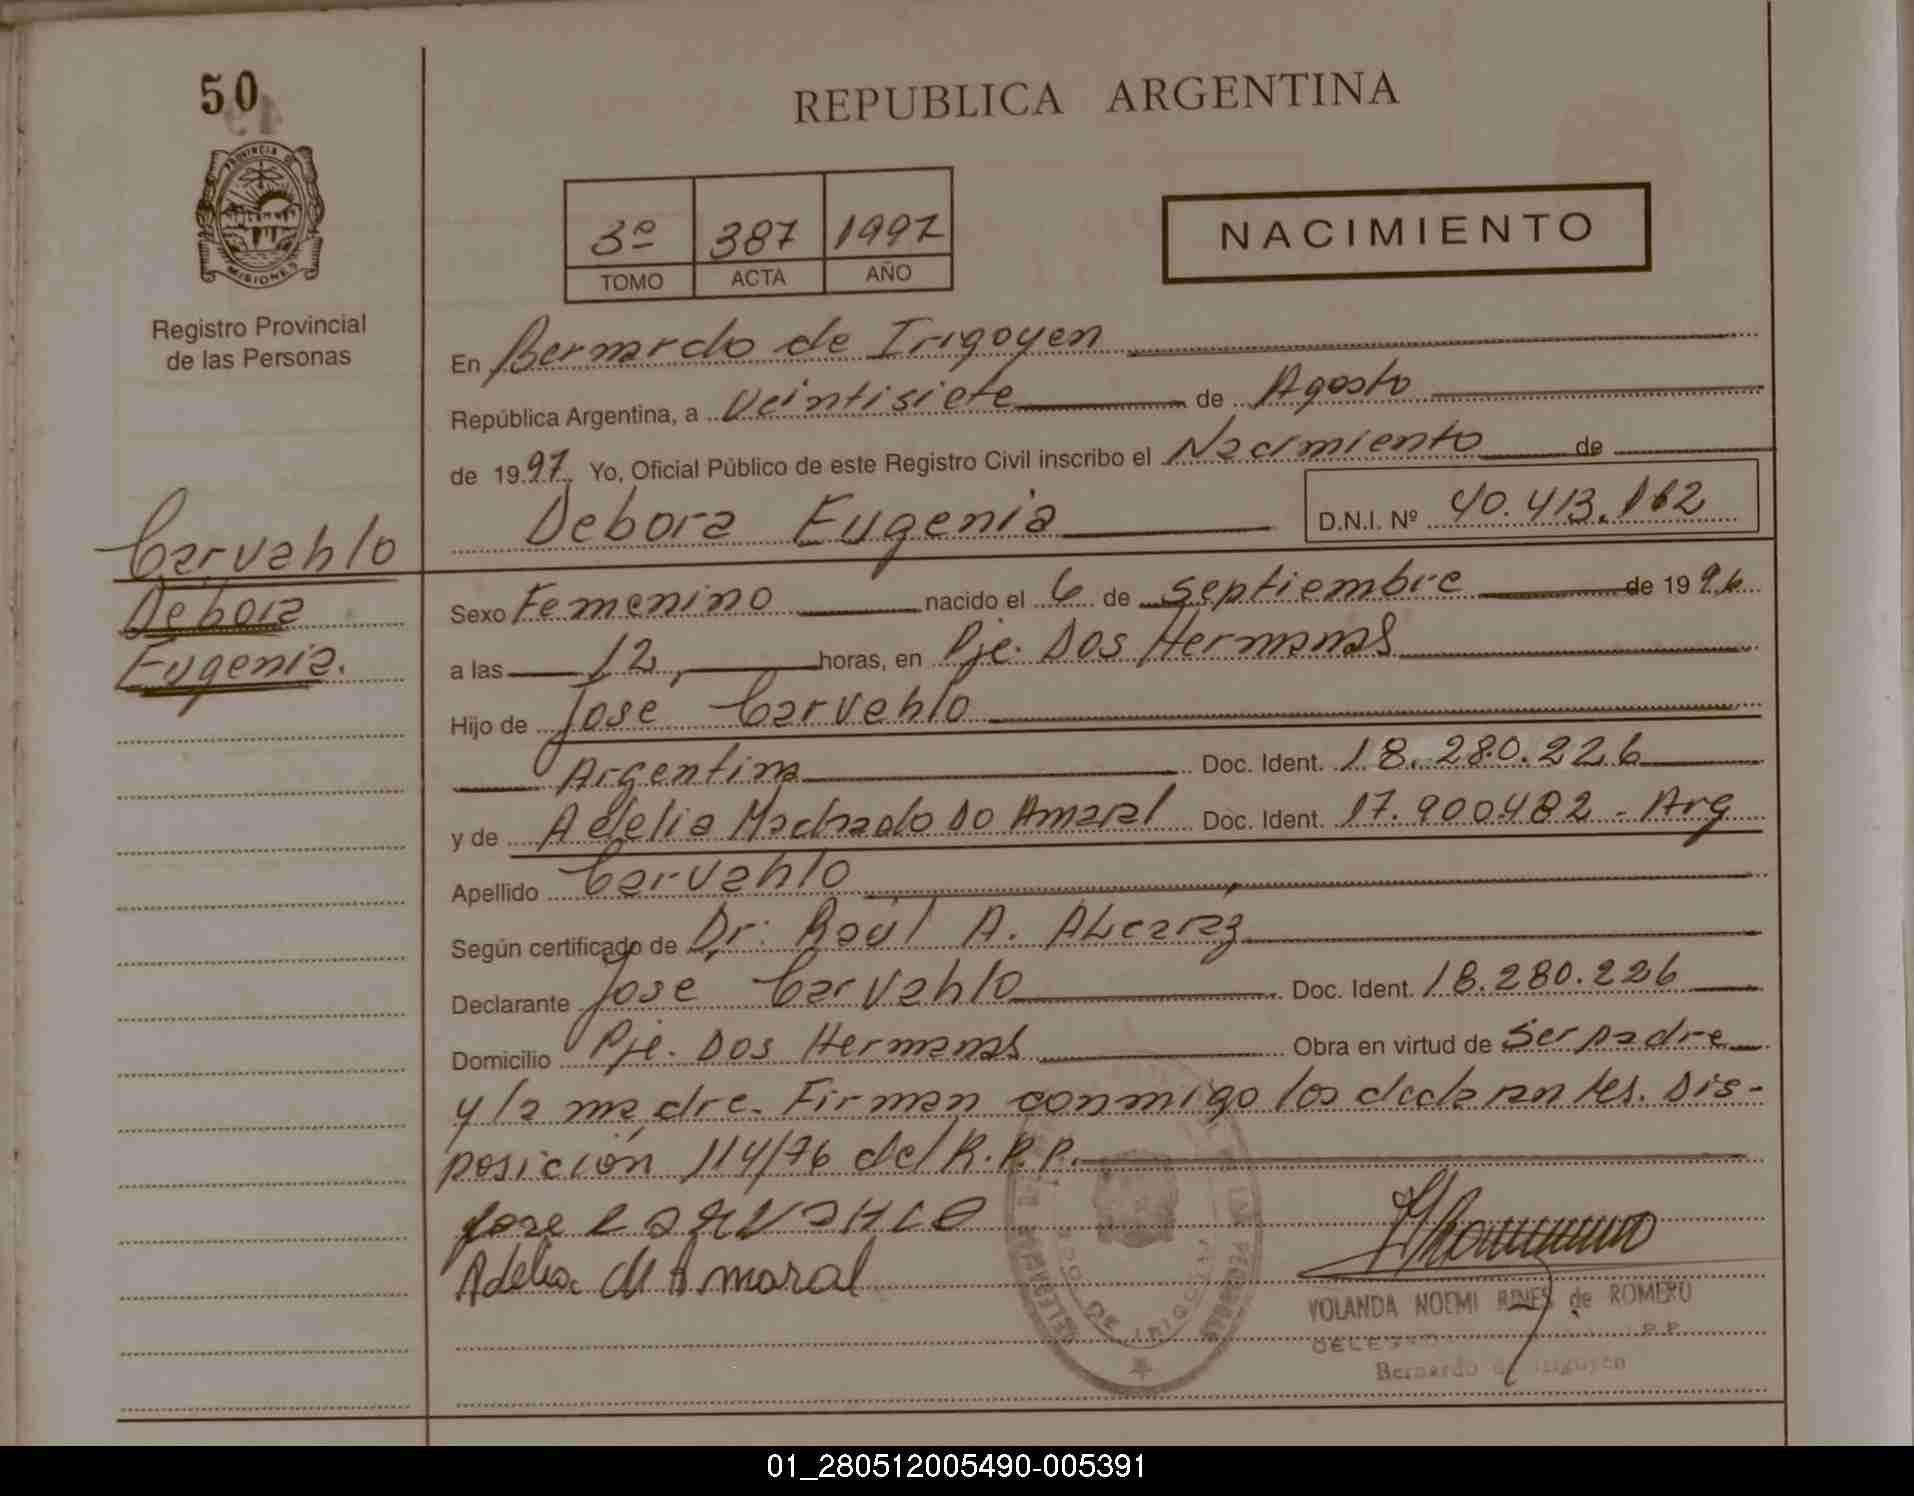 50
PROVINCIA DE
MISIONES
Registro Provincial
de las Personas
Carvahlo
Debora
Eugenia.
REPUBLICA ARGENTINA
3º 387 1997
TOMO ACTA AÑO
NACIMIENTO
En Bernardo de Irigoyen
República Argentina, a Veintisiete de Agosto
de 1997 Yo, Oficial Público de este Registro Civil inscribo el Nacimiento de
Debora Eugenia D.N.I. Nº 40.413.162
Sexo Femenino nacido el 6 de septiembre de 1996
a las 12 horas, en Pje. Dos Hermanas
Hijo de José Carvahlo
Argentina Doc. Ident. 18.280.226
y de Adelia Machado Do Amaral Doc. Ident. 17.900.482 - Arg
Apellido Carvahlo
Según certificado de Dr: Raúl A. ALcaráz
Declarante José Carvahlo Doc. Ident. 18.280.226
Domicilio Pje. Dos Hermanas Obra en virtud de Ser padre
y la madre. Firman conmigo los declarantes. Dis-
posición 114/76 del R.P.P.
Jose CARVAHLO
Adelia M Amaral
YOLANDA NOEMI de ROMERO
Bernardo de Irigoyen
01_280512005490-005391